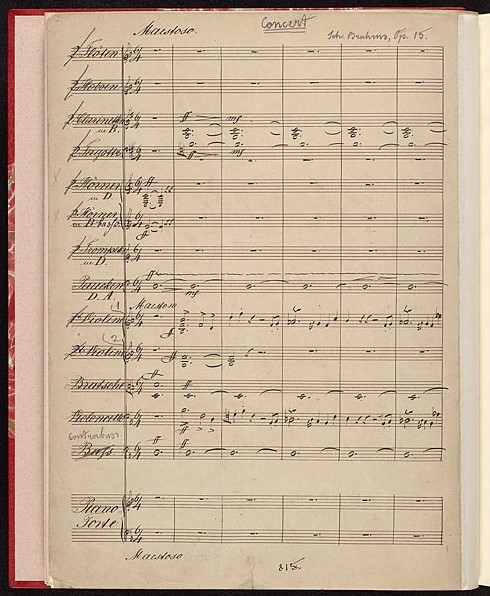 Concert
Maestoso.
Joh. Brahms, Op. 15.
2 Flöten
2 Hoboen
2 Clarinetten
in B.
2 Fagotte
2 Hörner
in D.
2 Hörner
in B basso
2 Trompeten
in D.
Pauken
D. A.
Maestoso
1
1e Violine
2
2e Violine
Bratsche
Violoncell
Contrabass
Bass
Piano
Forte
Maestoso
815.